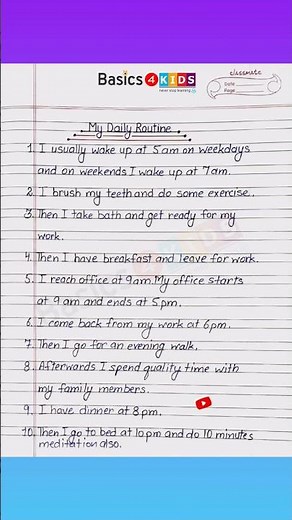 Basics 4 KIDS
never stop learning
classmate
Date
Page
My Daily Routine
1. I usually wake up at 5am on weekdays
and on weekends I wake up at 7am.
2. I brush my teeth and do some exercise.
3. Then I take bath and get ready for my
work.
4. Then I have breakfast and leave for work.
5. I reach office at 9am. My office starts
at 9am and ends at 5pm.
6. I come back from my work at 6pm.
7. Then I go for an evening walk.
8. Afterwards I spend quality time with
my family members.
9. I have dinner at 8pm.
10. Then I go to bed at 10pm and do 10 minutes
meditation also.
Basics 4 KIDS